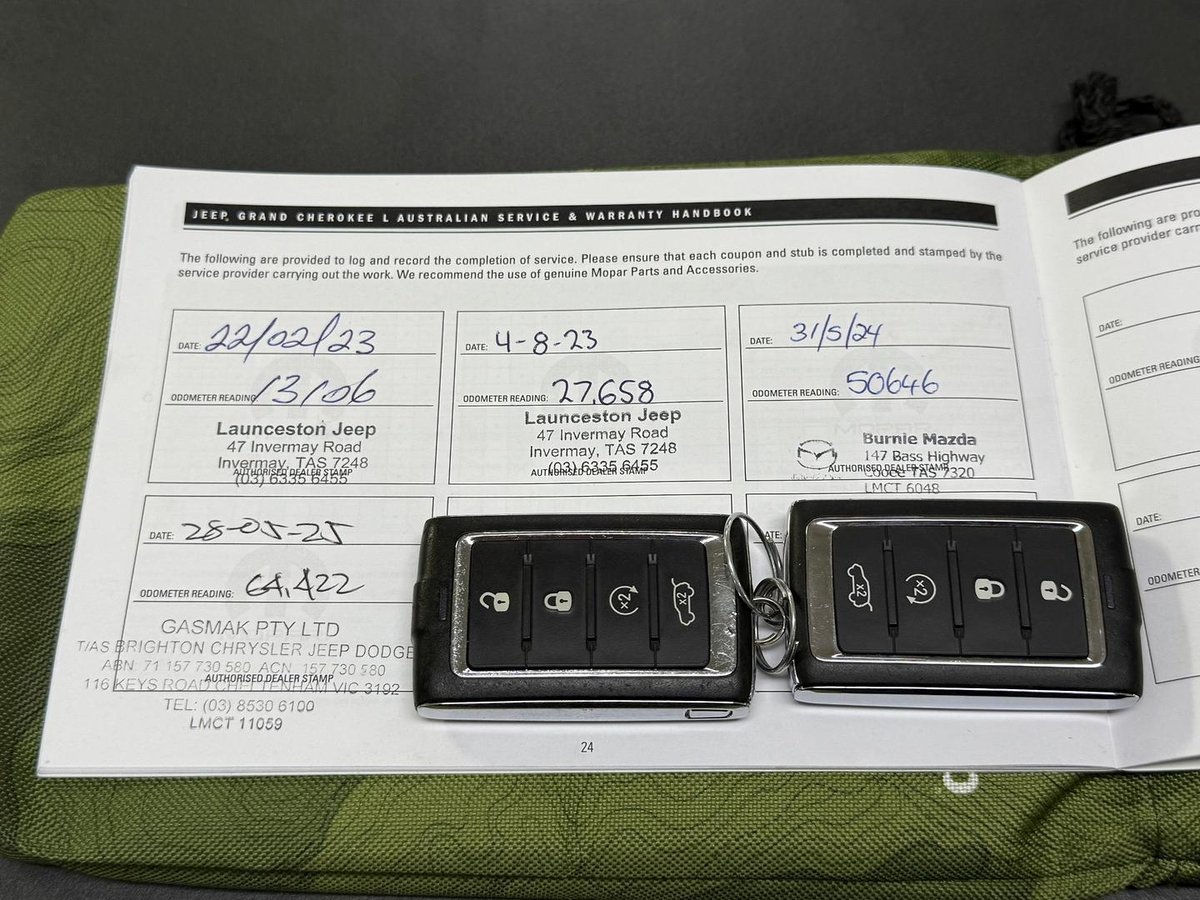 JEEP® GRAND CHEROKEE L AUSTRALIAN SERVICE & WARRANTY HANDBOOK
The following are provided to log and record the completion of service. Please ensure that each coupon and stub is completed and stamped by the
service provider carrying out the work. We recommend the use of genuine Mopar Parts and Accessories.
DATE: 22/02/23
ODOMETER READING: 13106
Launceston Jeep
47 Invermay Road
Invermay, TAS 7248
AUTHORISED DEALER STAMP
(03) 6335 6455
DATE: 4-8-23
ODOMETER READING: 27,658
Launceston Jeep
47 Invermay Road
Invermay, TAS 7248
(03) 6335 6455
AUTHORISED DEALER STAMP
DATE: 31/5/24
ODOMETER READING: 50646
Burnie Mazda
147 Bass Highway
AUTHORISED DEALER STAMP
Cooee TAS 7320
LMCT 6048
DATE: 28-05-25
ODOMETER READING: 64,422
GASMAK PTY LTD
T/AS BRIGHTON CHRYSLER JEEP DODGE
ABN: 71 157 730 580 ACN 157 730 580
AUTHORISED DEALER STAMP
116 KEYS ROAD CHELTENHAM VIC 3192
TEL: (03) 8530 6100
LMCT 11059
x2
x2
x2
x2
24
The following are
service provider
DATE:
ODOMETER READING
DATE:
ODOMETER